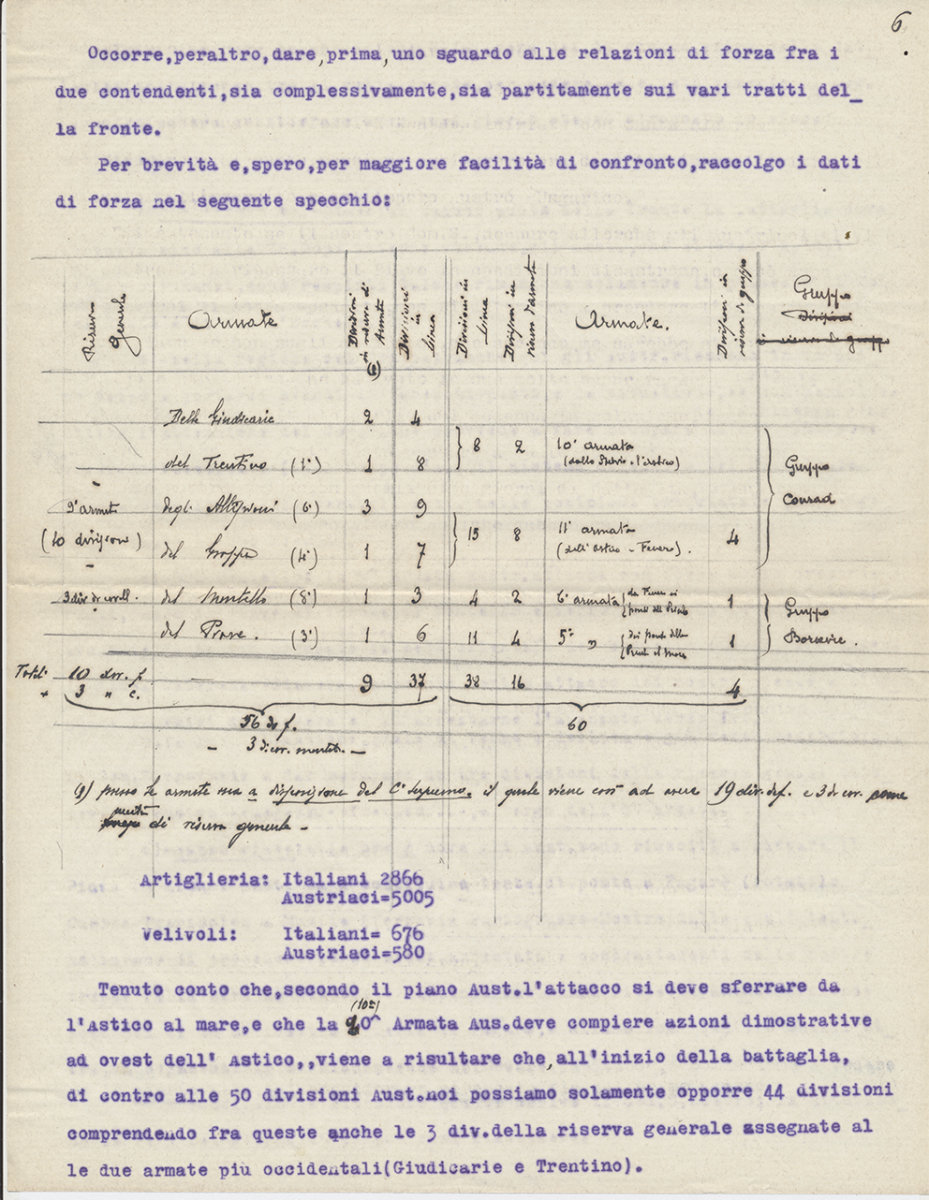 6.
Occorre,peraltro,dare,prima,uno sguardo alle relazioni di forza fra i
due contendenti,sia complessivamente,sia partitamente sui vari tratti del_
la fronte.
Per brevità e,spero,per maggiore facilità di confronto,raccolgo i dati
di forza nel seguente specchio:
Riserva Generale | Armate | Divisioni in riserva d'Armata (1) | Divisioni in linea | Divisioni in linea | Divisioni in riserva d'armata | Armate. | Divisioni in riserva di gruppo | Gruppo Divisioni in riserva di gruppo
Delle Giudicarie 2 4
del Trentino (1ª) 1 8 } 8 2 10ª armata (dallo Stelvio - l'Astico)
9ª armata degli Altipiani (6ª) 3 9 Gruppo Conrad
(10 divisioni) del Grappa (4ª) 1 7 } 15 8 11ª armata (dall'Astico - Fener). 4
3 div. di cavall. del Montello (8ª) 1 3 4 2 6ª armata 1 Gruppo
del Piave. (3ª) 1 6 11 4 5ª " 1 Boroevic.
Totali 10 div. f. 9 37 38 16 4
+ 3 " c.
56 d. f. 60
- 3 di cav. -
(1) presso le armate ma a disposizione del C° Supremo. il quale viene così ad avere 19 div. di f. e 3 di cav. come
di riserva generale -
Artiglieria: Italiani 2866
Austriaci=5005
Velivoli: Italiani= 676
Austriaci=580
Tenuto conto che,secondo il piano Aust.l'attacco si deve sferrare da
(10ª)
l'Astico al mare,e che la 10^ Armata Aus.deve compiere azioni dimostrative
ad ovest dell' Astico,,viene a risultare che,all'inizio della battaglia,
di contro alle 50 divisioni Aust.noi possiamo solamente opporre 44 divisioni
comprendendo fra queste anche le 3 div.della riserva generale assegnate al
le due armate più occidentali(Giudicarie e Trentino).